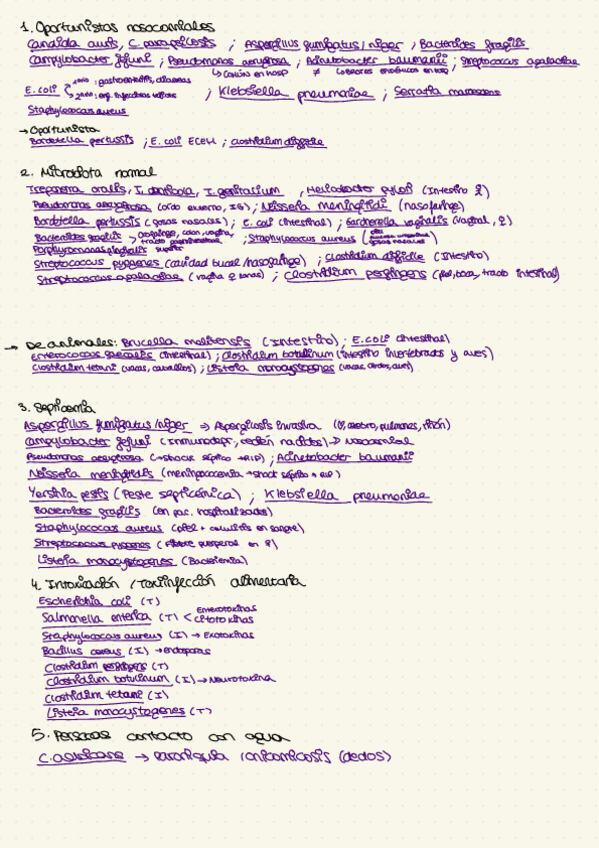 1. Oportunistas nosocomiales
Candida auris, C. parapsilosis ; Aspergillus fumigatus/niger ; Bacteroides fragilis
Campylobacter jejuni ; Pseudomonas aeruginosa ; Acinetobacter baumanii ; Streptococcus agalactiae
↳ Común en hosp ≠ en hosp
E. coli 1ario: gastroenteritis,
2ario:
; Klebsiella pneumoniae ; Serratia marcescens
Staphylococcus aureus
→ Oportunista
Bordetella pertussis ; E. coli ECEH ; clostridium difficile
2. Microbiota normal
Treponema oralis, T. denticola, T. genitalium , Helicobacter pylori (Intestino ♀)
Pseudomonas aeruginosa (oído externo, IG) ; Neisseria meningitidi (nasofaringe)
Bordetella pertussis (fosas nasales) ; E. coli (intestinal) ; Gardnerella vaginalis (vaginal, ♀)
Bacteroides fragilis > orofaringe, colon, vagina, tracto
; Staphylococcus aureus (piel fosas nasales)
Porphyromonas gingivalis
Streptococcus pyogenes (cavidad bucal/nasofaringe) ; Clostridium difficile (Intestino)
Streptococcus agalactiae (vagina ♀ sanas) ; Clostridium perfingens (piel, boca, tracto intestinal)
→ De animales: Brucella melitensis (Intestino) ; E. coli (intestinal)
enterococcus faecalis (intestinal) ; Clostridium botulinum (intestino invertebrados y aves)
Clostridium tetani (vacas, caballos) ; Listeria monocystogenes (vacas, aves)
3. Septicemia
Aspergillus fumigatus/niger ⇒ Aspergilosis invasiva (cerebro, pulmones, riñón)
Campylobacter jejuni (Inmunodepr, recién nacidos) → Nosocomial
Pseudomonas aeruginosa (→ shock séptico → RIP) ; Acinetobacter baumanii
Neisseria meningitidis (meningococemia → shock séptico + RIP)
Yersinia pestis (Peste septicémica) ; Klebsiella pneumoniae
Bacteroides fragilis (en pac. hospitalizados)
Staphylococcus aureus (piel + en sangre)
Streptococcus pyogenes (Fiebre puerperal en ♀)
Listeria monocystogenes (Bacteriemia)
4. Intoxicación / Toxiinfección alimentaria
Escherichia coli (T)
Salmonella enterica (T) < Enterotoxinas
citotoxinas
Staphylococcus aureus (I) → Exotoxinas
Bacillus cereus (I) → endosporas
Clostridium perfingens (T)
Clostridium botulinum (I) → Neurotoxina
Clostridium tetani (I)
Listeria monocystogenes (T)
5. Personas contacto con agua
C. albicans → Paroniquia / onicomicosis (dedos)